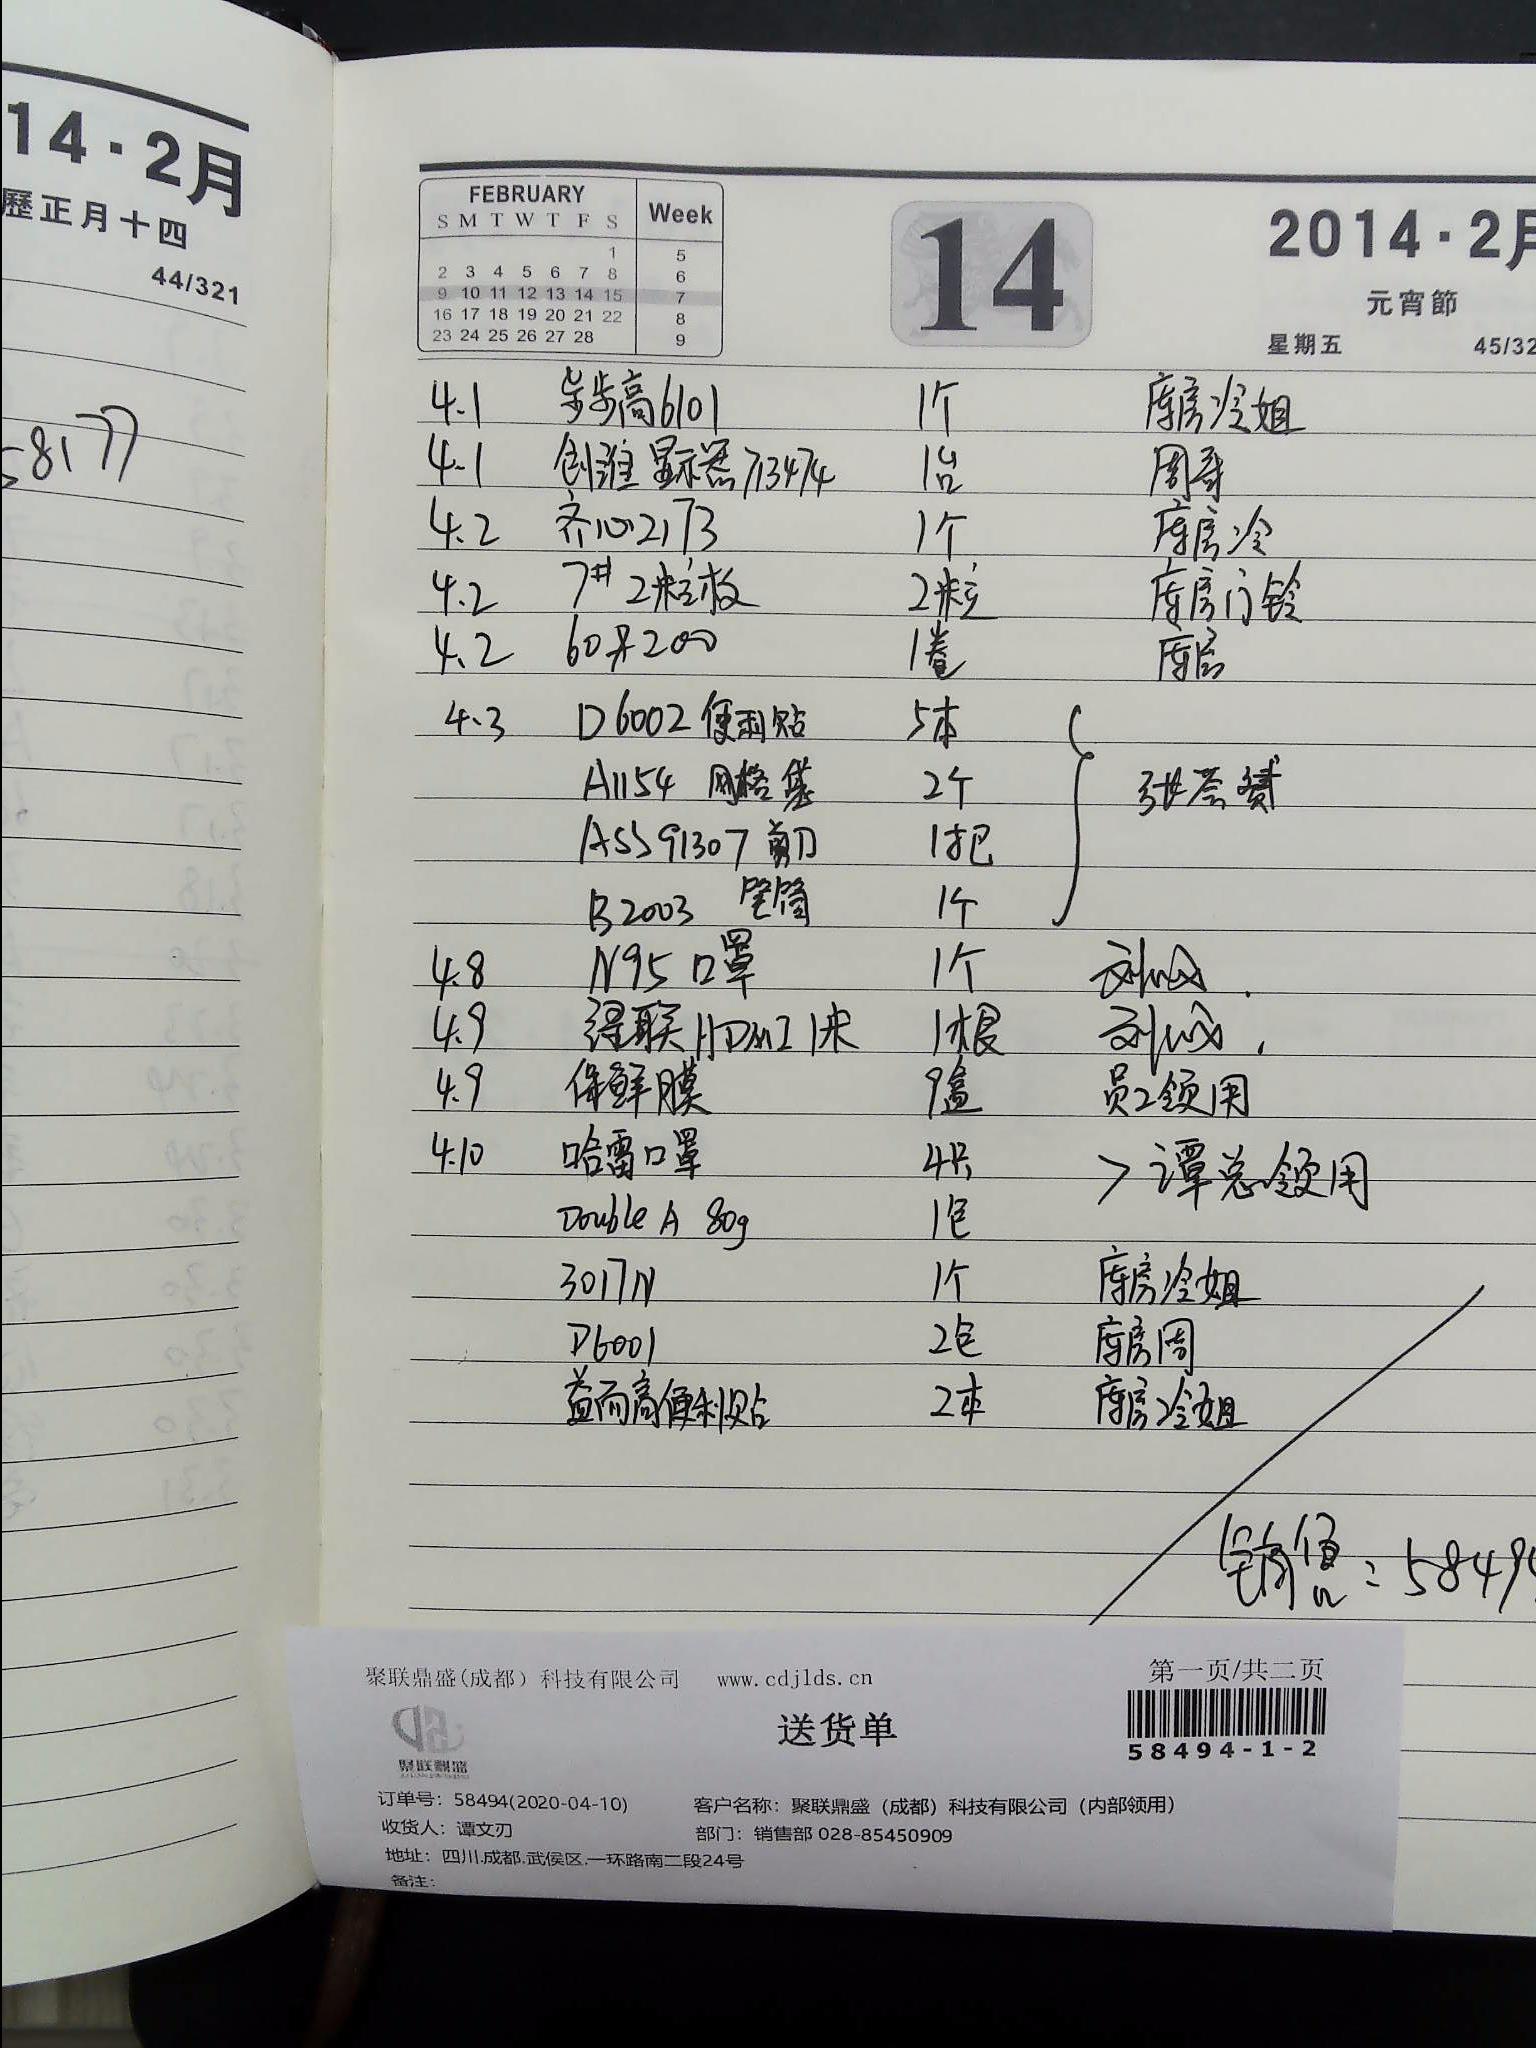 14·2月
歷正月十四
44/321
58177
FEBRUARY Week
S M T W T F S
1 5
2 3 4 5 6 7 8 6
9 10 11 12 13 14 15 7
16 17 18 19 20 21 22 8
23 24 25 26 27 28 9
14
2014·2月
元宵節
星期五 45/32
4.1 步步高6101 1个 库房冷姐
4.1 创维显示器713474 1台 周哥
4.2 齐心2173 1个 库房冷
4.2 7# 2粒 2粒 库房门铃
4.2 60 200 1卷 库房
4.3 D6002便利贴 5本
A1154 网格袋 2个 张
ASS91307剪刀 1把
B2003 笔筒 1个
4.8 N95口罩 1个
4.9 绿联HDMI 1米 1根
4.9 保鲜膜 9盒 员工领用
4.10 哈雷口罩 4只 >谭总领用
Double A 80g 1包
3017N 1个 库房冷姐
D6001 2包 库房周
益而高便利贴 2本 库房冷姐
销售:5849
聚联鼎盛(成都)科技有限公司 www.cdjlds.cn 第一页/共二页
送货单
聚联鼎盛
58494-1-2
订单号:58494(2020-04-10) 客户名称:聚联鼎盛(成都)科技有限公司(内部领用)
收货人:谭文刃 部门:销售部 028-85450909
地址:四川.成都.武侯区.一环路南二段24号
备注: